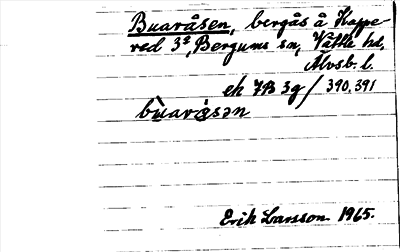 Buaråsen, bergås å Kappe-
red 3², Bergums sn, Vättle hd,
Älvsb. l.
ek 7B 3g / 390, 391
bùaråsən
Erik Larsson 1965.